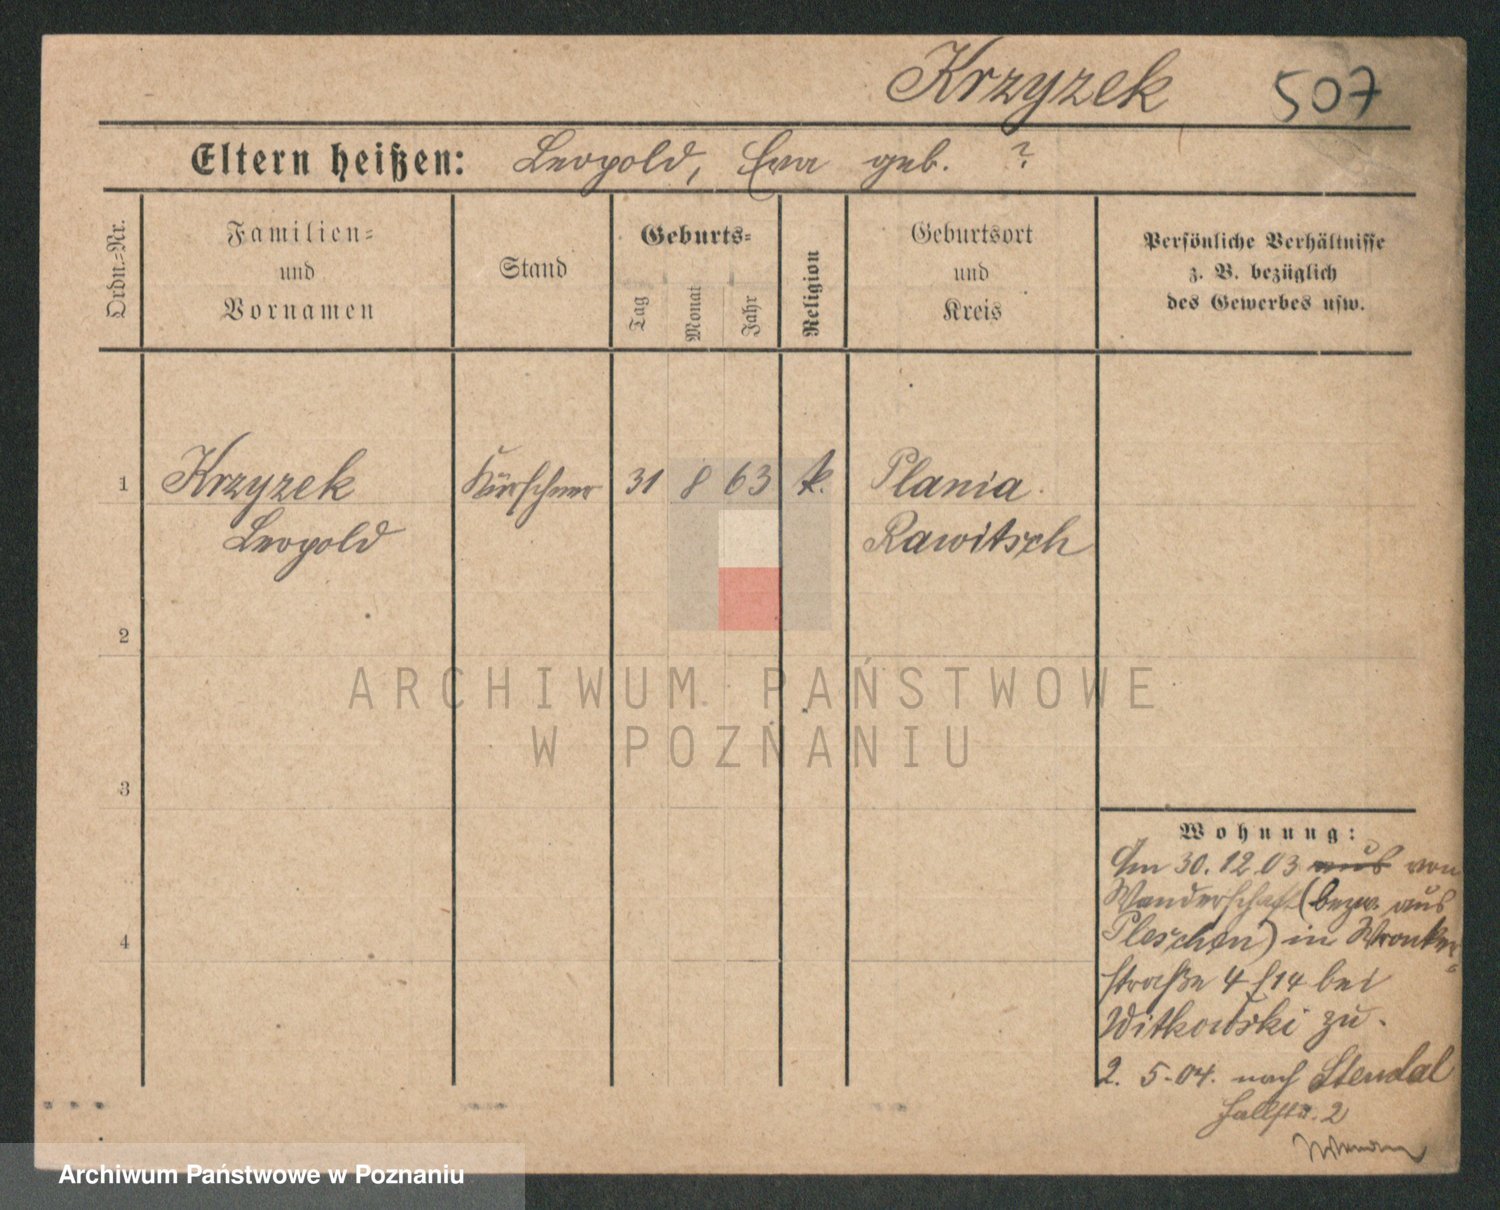 Krzyzek 507
Eltern heißen: Leopold, Eva geb. ?
Ordn.-Nr.
Familien-
und
Vornamen
Stand
Geburts-
Tag
Monat
Jahr
Religion
Geburtsort
und
Kreis
Persönliche Verhältnisse
z. B. bezüglich
des Gewerbes usw.
1 Krzyzek Kürschner 31 8 63 k. Plania
Leopold Rawitsch
2
ARCHIWUM PAŃSTWOWE
W POZNANIU
3
4
Wohnung:
Am 30.12.03 aus von
Wanderschaft (bezw. aus
Pleschen) in Wronker-
straße 4 f14 bei
Witkowski zu.
2. 5.04. nach Stendal
Hallstr. 2
Archiwum Państwowe w Poznaniu